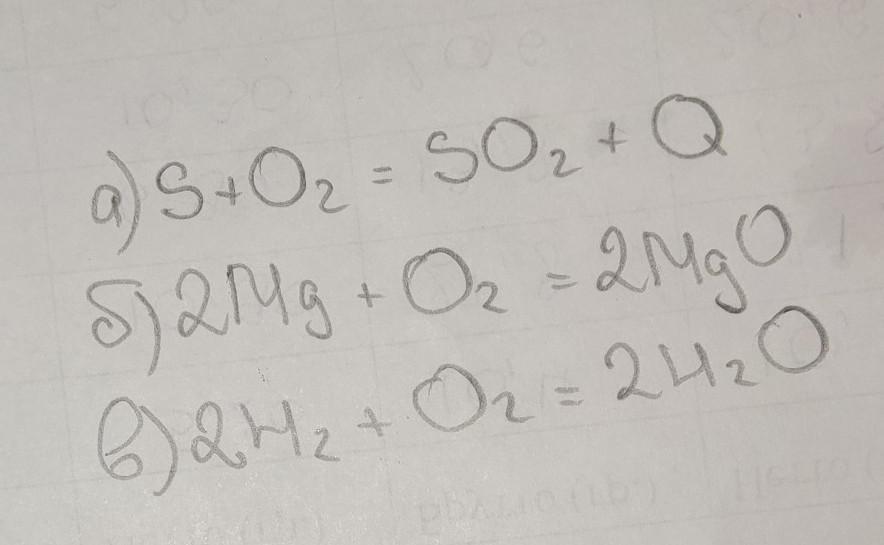 а) S+O₂ = SO₂ + Q
б) 2Mg + O₂ = 2MgO
в) 2H₂ + O₂ = 2H₂O